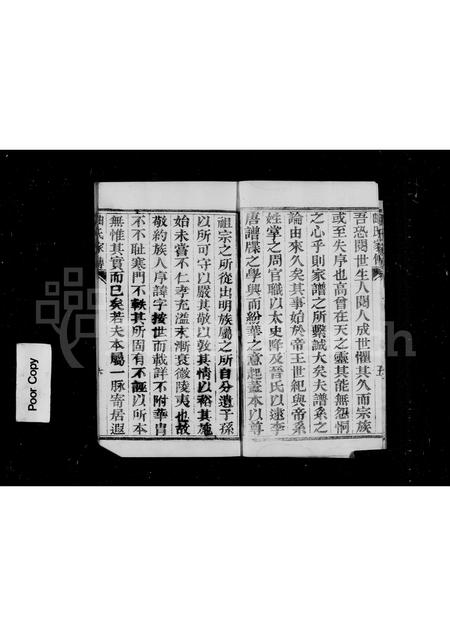 吾恐閱世生人閱人成世懼其久而宗族
或至失序也高曾在天之靈其能無怨恫
之心乎則家譜之所繫誠大矣夫譜系之
論由來久矣其事始於帝王世紀與帝系
姓掌之周官職以太史降及晉氏以逮李
唐譜牒之學興而紛華之意起蓋本以尊
祖宗之所從出明族屬之所自分遺子孫
以所可守以嚴其敬以敦其情以裕其施
始未嘗不仁孝充溢末漸衰微陵夷也故
敬約族人序諱字按世而載詳不附華冑
不不耻寒門不軼其所固有不誣以所本
無惟其實而已矣若夫本屬一脈寄居遐
氏家傳
六
五
Poor Copy